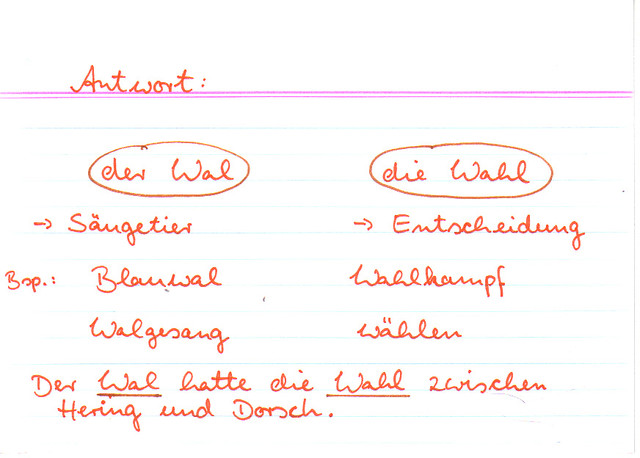 Antwort:
der Wal die Wahl
→ Säugetier → Entscheidung
Bsp.: Blauwal Wahlkampf
Walgesang wählen
Der Wal hatte die Wahl zwischen
Hering und Dorsch.